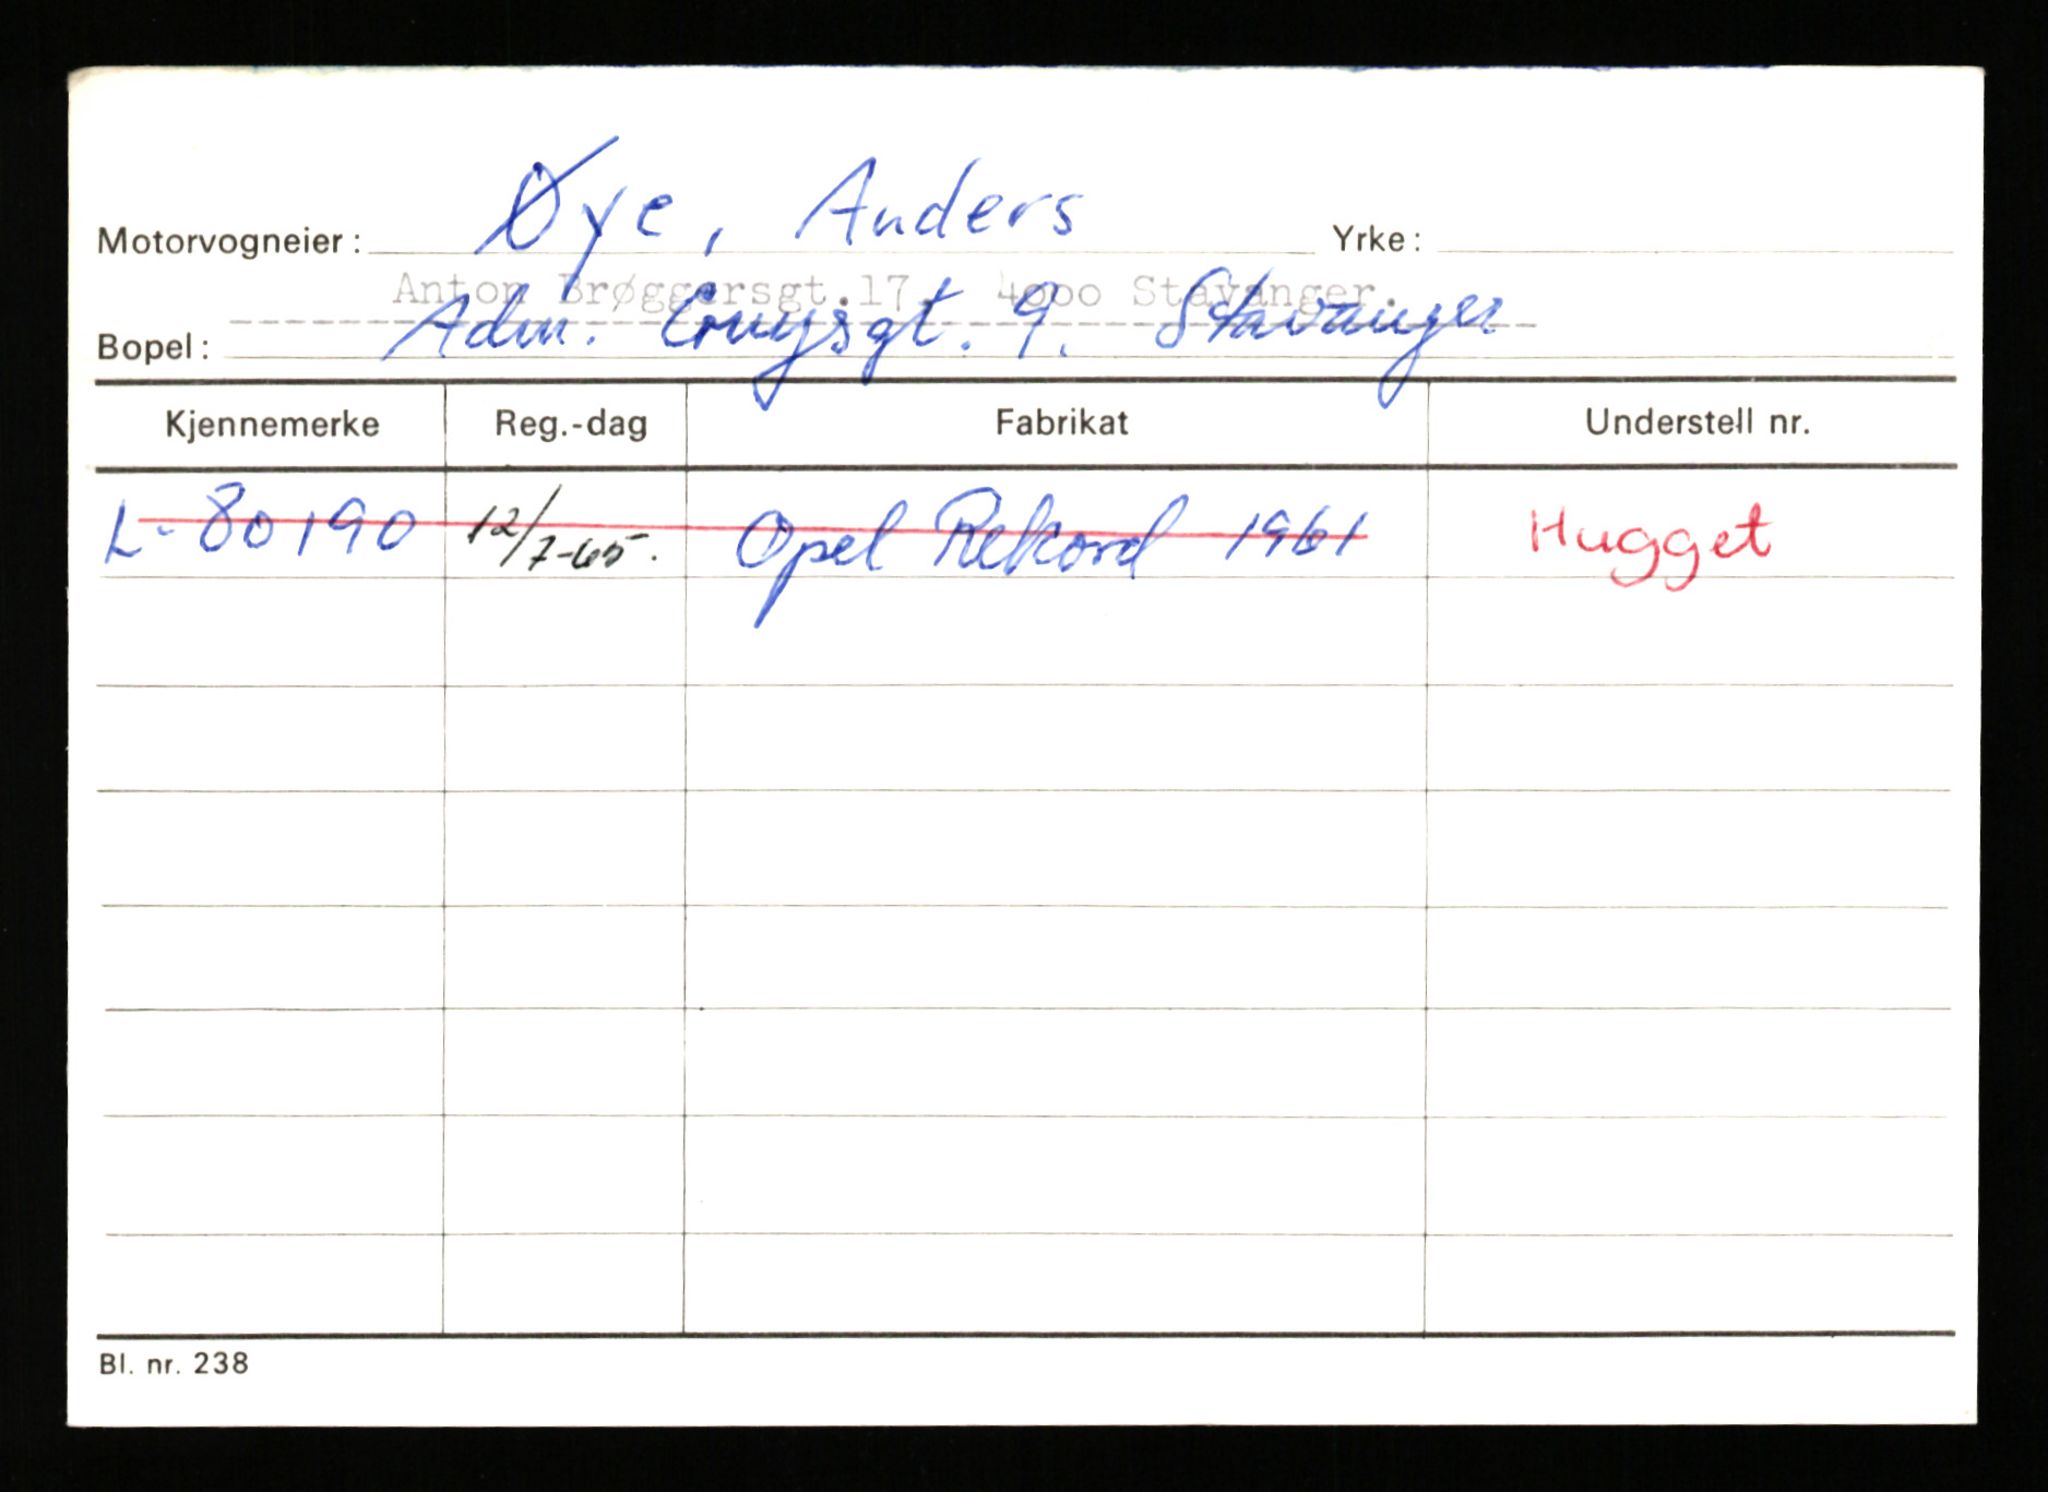 Motorvogneier: Øye, Anders Yrke:
Anton Brøggersgt.17, 4000 Stavanger.
Bopel: Adm. Cruysgt. 9. Stavanger
Kjennemerke Reg.-dag Fabrikat Understell nr.
L-80190 12/7-65. Opel Rekord 1961 Hugget
Bl. nr. 238